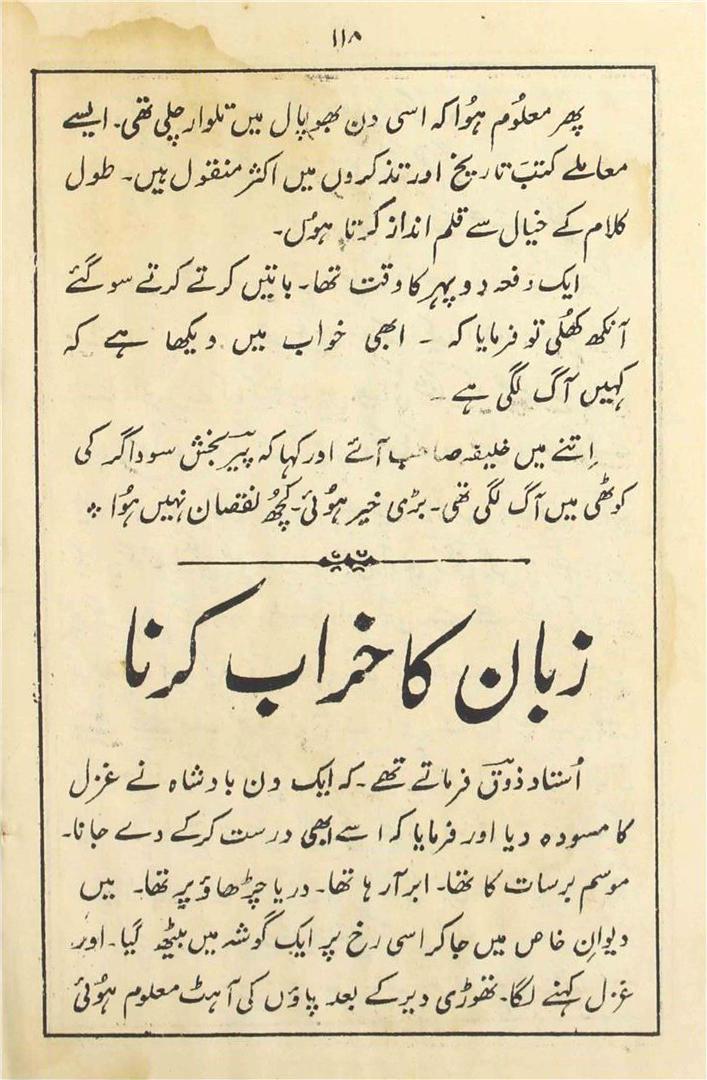 ۱۱۸
پھر معلُوم ہُوا کہ اسی دن بھوپال میں تلوار چلی تھی۔ ایسے
معاملے کتبَ تاریخ اور تذکروں میں اکثر منقول ہیں۔ طول
کلام کے خیال سے قلم انداز کرتا ہوُں۔
ایک دفعہ دوپہر کا وقت تھا۔ باتیں کرتے کرتے سو گئے
آنکھ کھُلی تو فرمایا کہ ۔ ابھی خواب میں دیکھا ہے کہ
کہیں آگ لگی ہے ۔
اِتنے میں خلیفہ صاحب آئے اور کہا کہ پیر بخش سوداگر کی
کوٹھی میں آگ لگی تھی۔ بڑی خیر ہُوئی۔ کچُھ نقصان نہیں ہُوا ؞
زبان کا خراب کرنا
اُستاد ذوقؔ فرماتے تھے ۔ کہ ایک دن بادشاہ نے غزل
کا مسودہ دیا اور فرمایا کہ اسے ابھی درست کرکے دے جانا۔
موسم برسات کا تھا۔ ابر آ رہا تھا۔ دریا چڑھاؤ پر تھا۔ میں
دیوانِ خاص میں جا کر اسی رخ پر ایک گوشہ میں بیٹھ گیا۔ اور
غزل کہنے لگا۔ تھوڑی دیر کے بعد پاؤں کی آہٹ معلوم ہُوئی